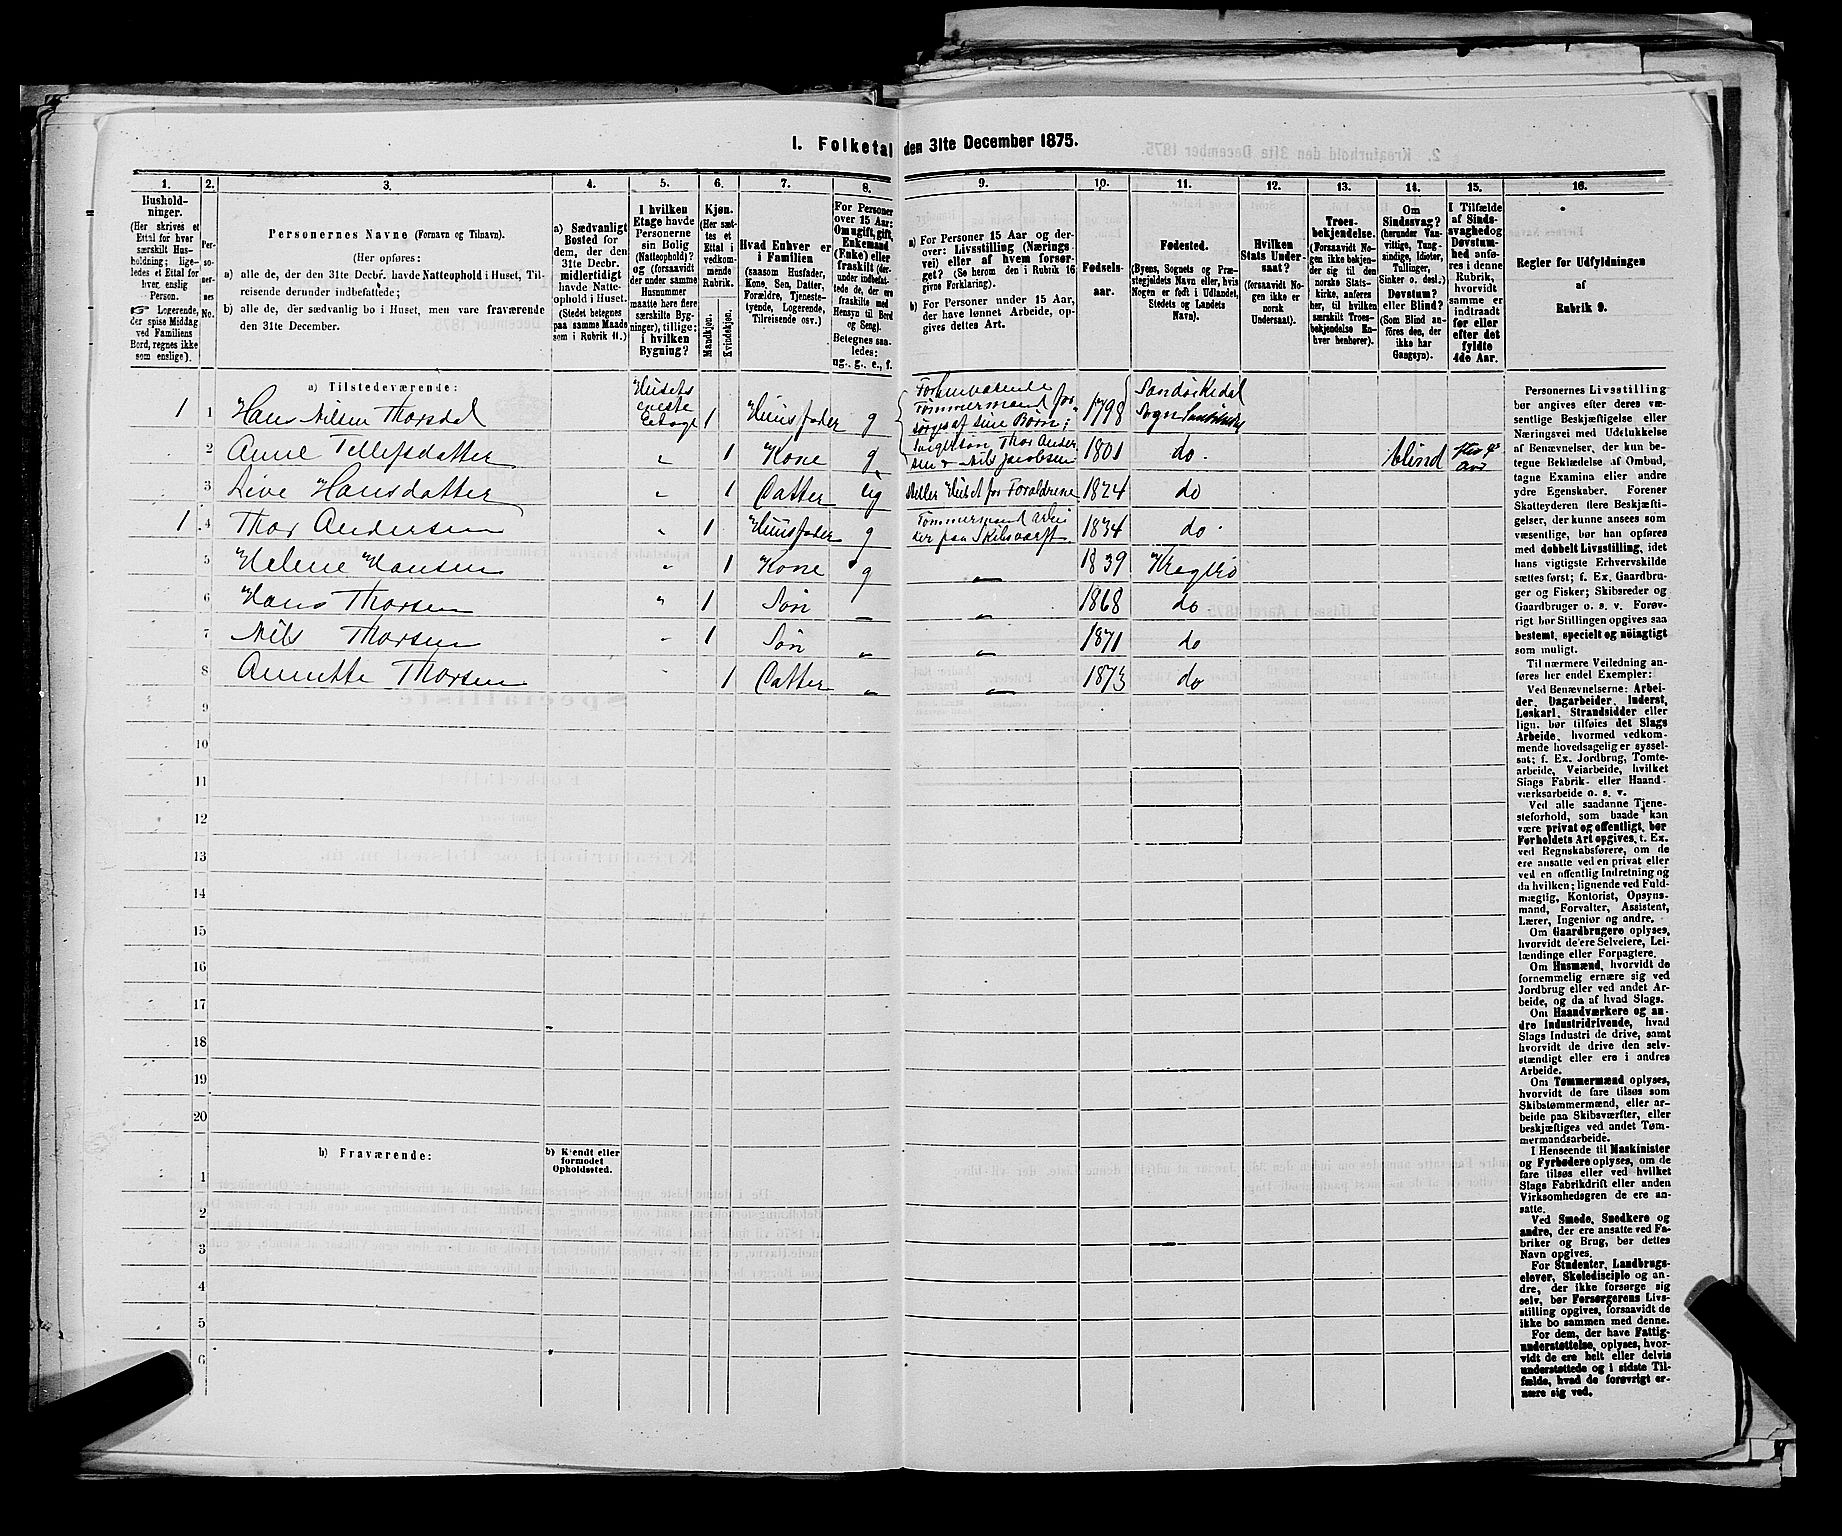 1. Folketal den 31te December 1875.
1. 2. 3. 4. 5. 6. 7. 8. 9. 10. 11. 12. 13. 14. 15. 16.
Hushold-
ninger.
(Her skrives et
Ettal for hver
særskilt Hus-
holdning; lige-
ledes et Ettal for
hver enslig
Person.
☞ Logerende,
der spise Middag
ved Familiens
Bord, regnes ikke
som enslige).
Per-
so-
ner-
nes
No.
Personernes Navne (Fornavn og Tilnavn).
(Her opføres:
a) alle de, der den 31te Decbr. havde Natteophold i Huset, Til-
reisende derunder indbefattede;
b) alle de, der sædvanlig bo i Huset, men vare fraværende
den 31te December.
a) Sædvanligt
Bosted for
dem, der den
31te Decbr.
midlertidigt
havde Natte-
ophold i Huset.
(Stedet betegnes
paa samme Maade
som i Rubrik 11.)
I hvilken
Etage havde
Personerne
sin Bolig
(Natteophold)?
og (forsaavidt
der under samme
Husnummer
maatte høre flere
særskilte Byg-
ninger), tillige:
i hvilken
Bygning?
Kjøn.
(Her sæt-
tes et
Ettal i
vedkom-
mende
Rubrik.
Mandkjøn.
Kvindekjøn.
Hvad Enhver er
i Familien
(saasom Husfader,
Kone, Søn, Datter,
Forældre, Tjeneste-
tyende, Logerende,
Tilreisende osv.)
For Personer
over 15 Aar:
Om ugift, gift,
Enkemand
(Enke) eller
fraskilt (der-
under indbefat-
tede de, der ere
fraskilte med
Hensyn til Bord
og Seng).
Betegnes saa-
ledes:
ug., g., e., f.
a) For Personer 15 Aar og der-
over: Livsstilling (Nærings-
vei) eller af hvem forsør-
get? (Se herom den i Rubrik 16
givne Forklaring).
b) For Personer under 15 Aar,
der have lønnet Arbeide, op-
gives dettes Art.
Fødsels-
aar.
Fødested.
(Byens, Sognets og Præ-
stegjeldets Navn eller, hvis
Nogen er født i Udlandet,
Stedets og Landets
Navn).
Hvilken
Stats Under-
saat?
(forsaavidt No-
gen ikke er
norsk
Undersaat).
Troes-
bekjendelse.
(Forsaavidt No-
gen ikke bekjen-
der sig til den
norske Stats-
kirke, anføres
her, til hvilken
særskilt Troes-
bekjendelse En-
hver henhører).
Om
Sindssvag?
(herunder Van-
vittige, Tung-
sindige, Idioter,
Tullinger,
Sinker o. desl.)
Døvstum?
eller Blind?
(Som Blind an-
føres den, der
ikke har
Gangsyn).
I Tilfælde
af Sinds-
svaghed og
Døvstum-
hed anfø-
res i denne
Rubrik,
hvorvidt
samme er
indtraadt
før eller
efter det
fyldte
4de Aar.
Regler for Udfyldningen
af
Rubrik 9.
a) Tilstedeværende:
1 1 Hans Nilsen Thorsdal Husets eneste Etage 1 Huusfader g Forhenværende Tømmermand forsørges af sine Børn; 1798 Sandøkedal Sogn
2 Anne Tellefsdatter „ 1 Kone g Thor Andersen Nils Jacobsen 1801 do. blind
3 Live Hansdatter „ 1 Datter ug steller Huset for Forældrene 1824 do
1 4 Thor Andersen „ 1 Huusfader g Tømmermand paa Skibsværft 1834 do.
5 Helene Hansen „ 1 Kone g „ 1839 Kragerø
6 Hans Thorsen „ 1 Søn „ „ 1868 do
7 Nils Thorsen „ 1 Søn „ „ 1871 do
8 Annette Thorsen „ 1 Datter „ „ 1873 do
9
10
11
12
13
14
15
16
17
18
19
20
b) Fraværende:
b) Kjendt eller
formodet
Opholdssted.
1
2
3
4
5
6
Personernes Livsstilling
bør angives efter deres væ-
sentlige Beskjæftigelse eller
Næringsvei med Udelukkelse
af Benævnelser, der kun be-
tegne Beklædelse af Ombud,
tagne Examina eller andre
ydre Egenskaber. Forener
Skatteyderen flere Beskjæfti-
gelser, der kunne ansees som
væsentlige, bør han opføres
med dobbelt Livsstilling, idet
hans vigtigste Erhvervskilde
sættes først; f. Ex. Gaardbru-
ger og Fisker; Skibsreder og
Gaardbruger o. s. v. Forøv-
rigt bør Stillingen opgives saa
bestemt, specielt og nöiagtigt
som muligt.
Til nærmere Veiledning an-
føres her endel Exempler:
Ved Benævnelserne: Arbei-
der, Dagarbeider, Inderst,
Løskarl, Strandsidder eller
lign. bør tilføies det Slags
Arbeide, hvormed vedkom-
mende hovedsagelig er syssel-
sat; f. Ex. Jordbrug, Tomte-
arbeide, Veiarbeide, hvilket
Slags Fabrik- eller Haand-
værksarbeide o. s. v.
Ved alle saadanne Tjene-
steforhold, som baade kan
være privat og offentligt, bør
Forholdets Art opgives, t. Ex.
ved Regnskabsførere, om de
ere ansatte ved en privat eller
ved en offentlig Indretning og
da hvilken; lignende ved Fuld-
mægtig, Kontorist, Opsyns-
mand, Forvalter, Assistent,
Lærer, Ingeniør og andre.
Om Gaardbrugere oplyses,
hvorvidt de ere Selveiere, Lei-
lændinge eller Forpagtere.
Om Husmænd, hvorvidt de
fornemmelig ernære sig ved
Jordbrug eller ved andet Ar-
beide, og da af hvad Slags.
Om Haandværkere og an-
dre Industridrivende, hvad
Slags Industri de drive, samt
hvorvidt de drive den selv-
stændigt eller ere i andres
Arbeide.
Om Tømmermænd oplyses,
hvorvidt de fare tilsøs som
Skibstømmermænd, eller ar-
beide paa Skibsværfter, eller
beskjæftiges ved andet Tøm-
mermandsarbeide.
I Henseende til Maskinister
og Fyrbødere oplyses, om de
fare tilsøs eller ved hvilket
Slags Fabrikdrift eller anden
Virksomhedsgren de ere an-
satte.
Ved Smede, Snedkere og
andre, der ere ansatte ved Fa-
briker og Brug, bør dettes
Navn opgives.
For Studenter, Landbrugs-
elever, Skoledisciple og an-
dre, der ikke forsørge sig
selv, bør Forsørgerens Livs-
stilling opgives, forsaavidt de
ikke bo sammen med denne.
For dem, der have Fattig-
understøttelse, oplyses, hvor-
vidt de ere helt eller delvis
understøttede og i sidste Til-
fælde, hvad de forøvrigt er-
nære sig ved.